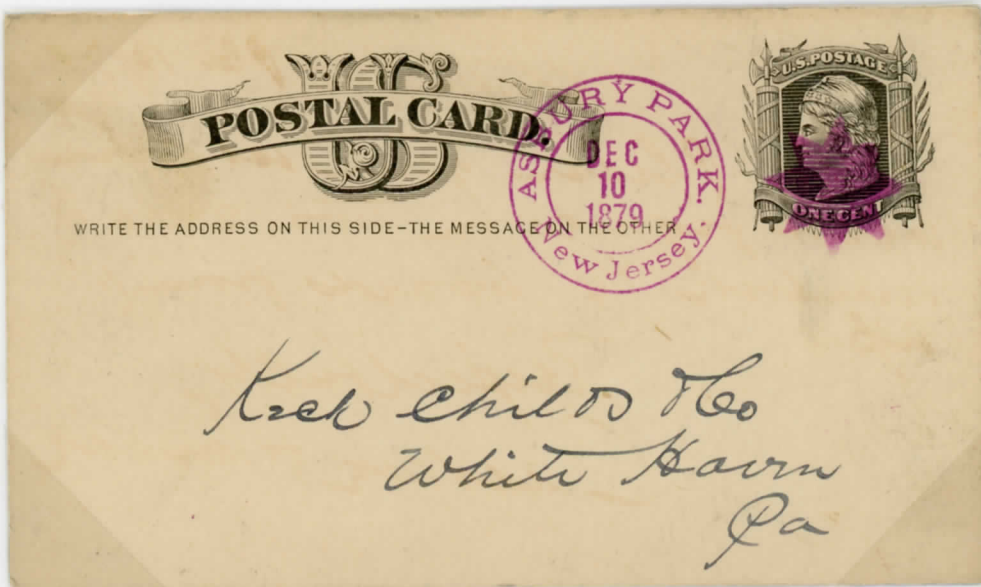 US
POSTAL CARD.
WRITE THE ADDRESS ON THIS SIDE–THE MESSAGE ON THE OTHER
ASBURY PARK.
DEC
10
1879
New Jersey.
U.S. POSTAGE
ONE CENT
Keck Childs & Co
White Haven
Pa